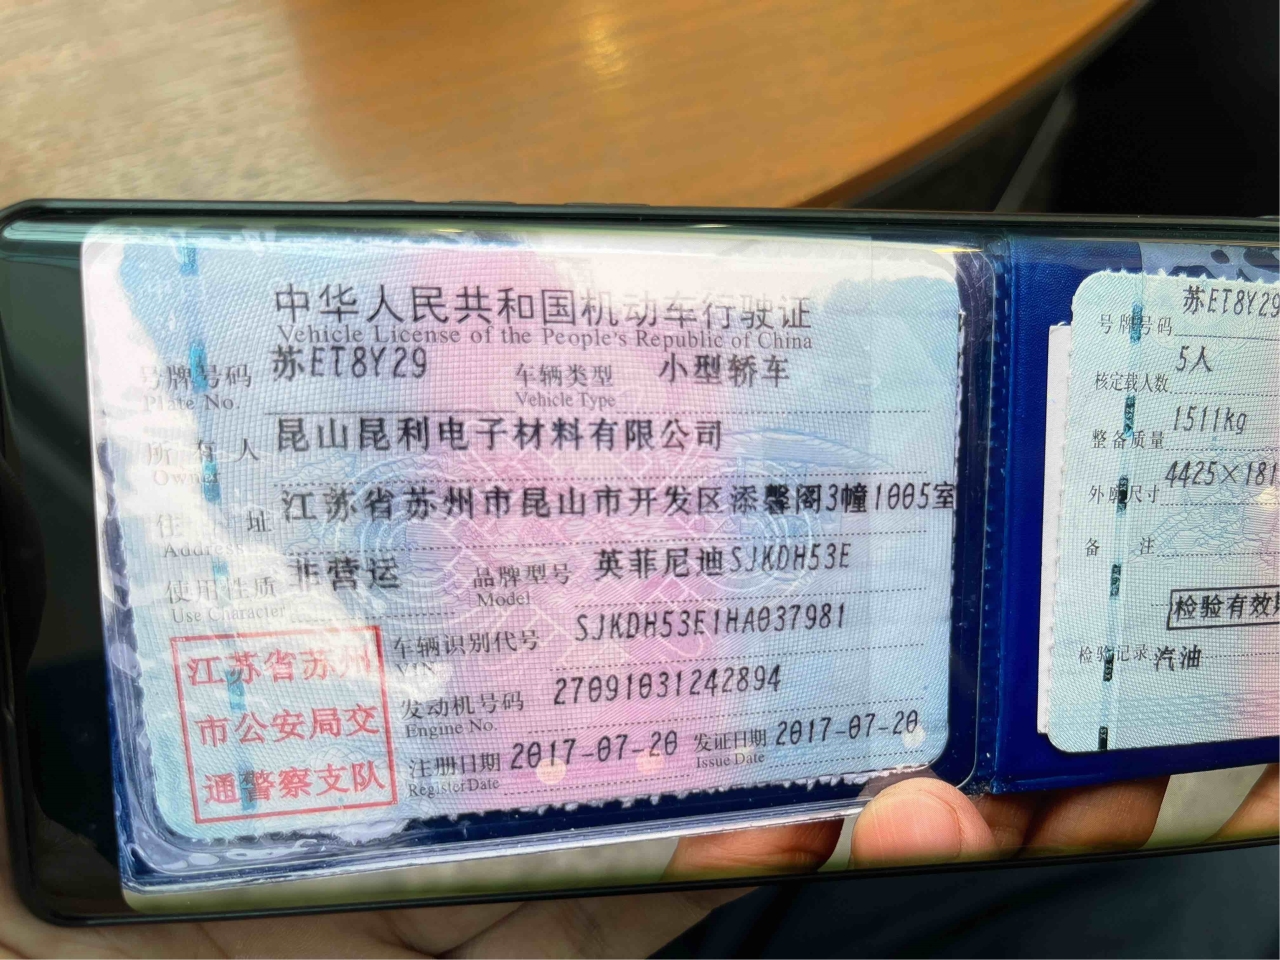 中华人民共和国机动车行驶证
Vehicle License of the People's Republic of China
号牌号码 苏ET8Y29 车辆类型 小型轿车
Plate No. Vehicle Type
所有人 昆山昆利电子材料有限公司
Owner
住址 江苏省苏州市昆山市开发区添馨阁3幢1005室
Address
使用性质 非营运 品牌型号 英菲尼迪SJKDH53E
Use Character Model
车辆识别代号 SJKDH53E1HA037981
VIN
发动机号码 27091031242894
Engine No.
注册日期 2017-07-20 发证日期 2017-07-20
Register Date Issue Date
江苏省苏州
市公安局交
通警察支队
号牌号码 苏ET8Y29
核定载人数 5人
整备质量 1511kg
外廓尺寸 4425×181
备注
检验有效
检验记录 汽油